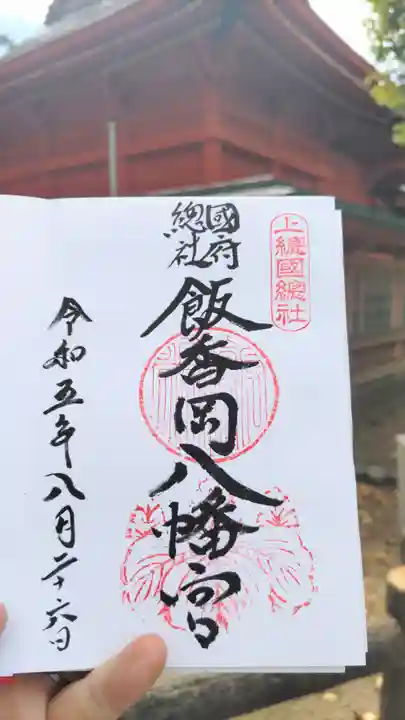 上總國總社
國府
總社
飯香岡八幡宮
令和五年八月二十六日